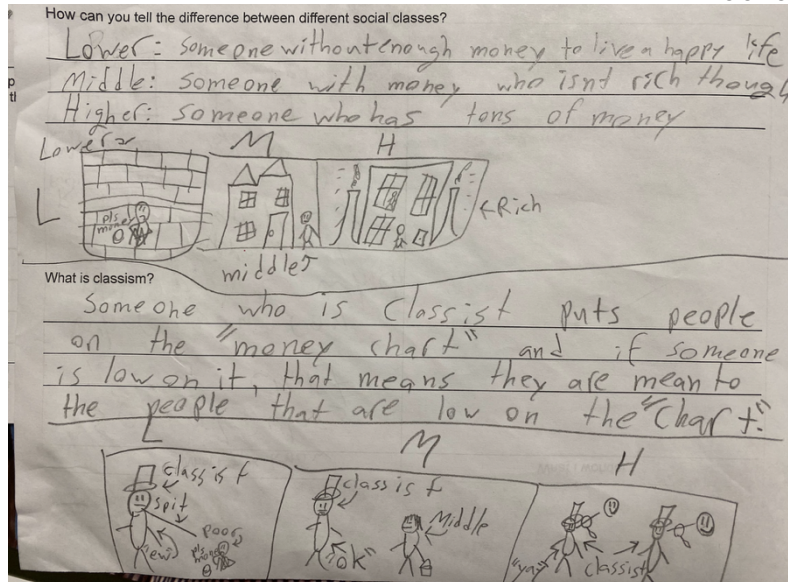 How can you tell the difference between different social classes?
Lower: Someone without enough money to live a happy life
Middle: Someone with money who isnt rich though
Higher: Someone who has tons of money
Lower
M
H
L
pls
money
←Rich
middle
What is classism?
Someone who is Classist puts people
on the "money chart" and if someone
is low on it, that means they are mean to
the people that are low on the "Chart."
L
M
H
Classist
Spit
poor
"ew"
pls
money
classist
Middle
"ok"
"yay"
classist